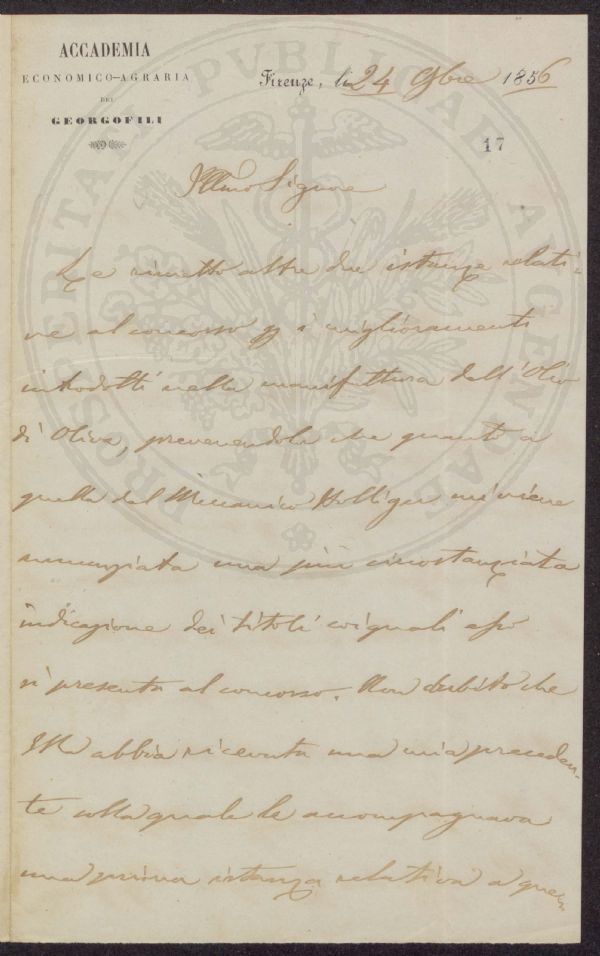 ACCADEMIA
ECONOMICO-AGRARIA
DEI
GEORGOFILI
Firenze, li 24 9bre 1856
17
PROSPERITATI PUBLICAE AUGENDAE
Illmo Signore
Le rimetto altre due istanze relati-
ve al concorso pp i miglioramenti
introdotti nella manifattura dell'Olio
di Oliva, prevenendola che quanto a
quella del Meccanico Holliger mi viene
annunziata una più circostanziata
indicazione dei titoli coi quali esso
si presenta al concorso. Non dubito che
Ella abbia ricevuta una mia preceden-
te colla quale le accompagnava
una prima istanza relativa a que